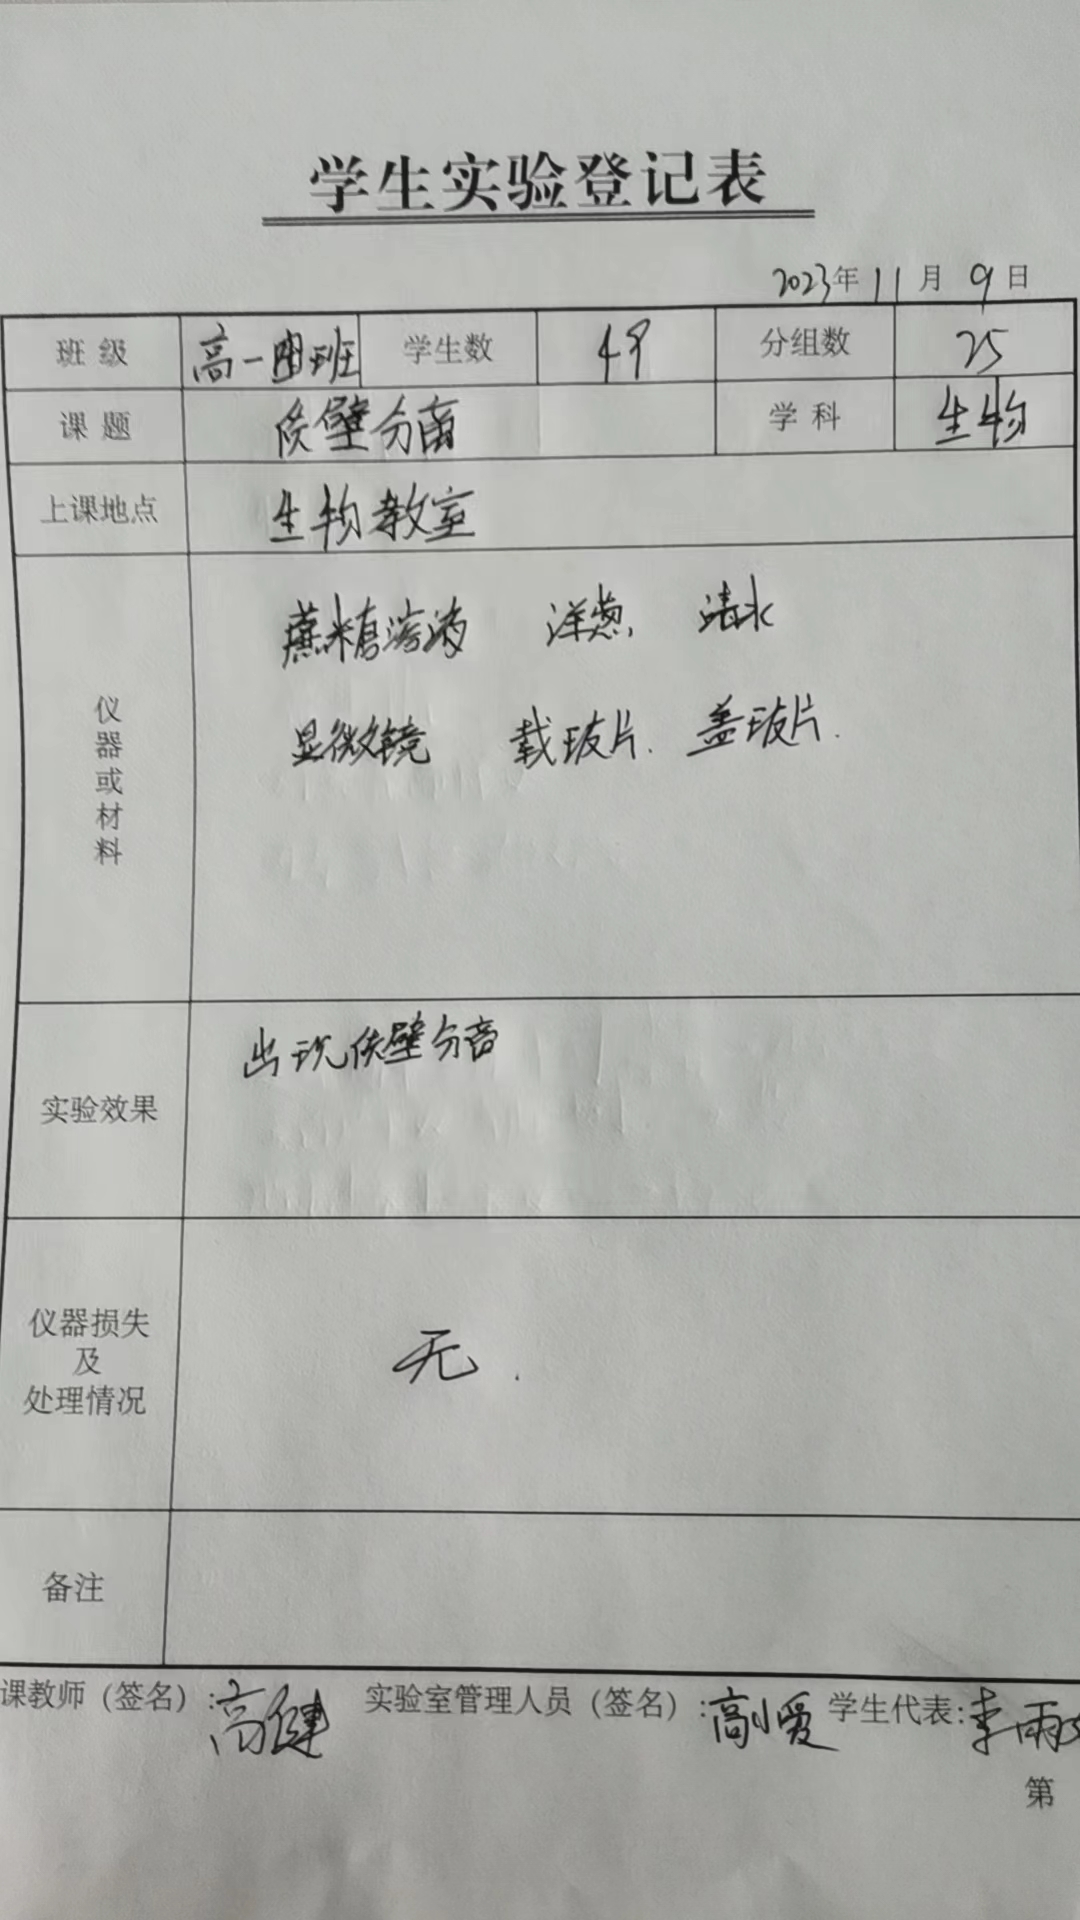 学生实验登记表
2023年11月9日
班级 高一四班 学生数 49 分组数 25
课题 质壁分离 学科 生物
上课地点 生物教室
仪器或材料
蔗糖溶液 洋葱 清水
显微镜 载玻片. 盖玻片.
实验效果 出现质壁分离
仪器损失
及
处理情况
无.
备注
课教师（签名）:高健 实验室管理人员（签名）:高小爱 学生代表:李雨
第